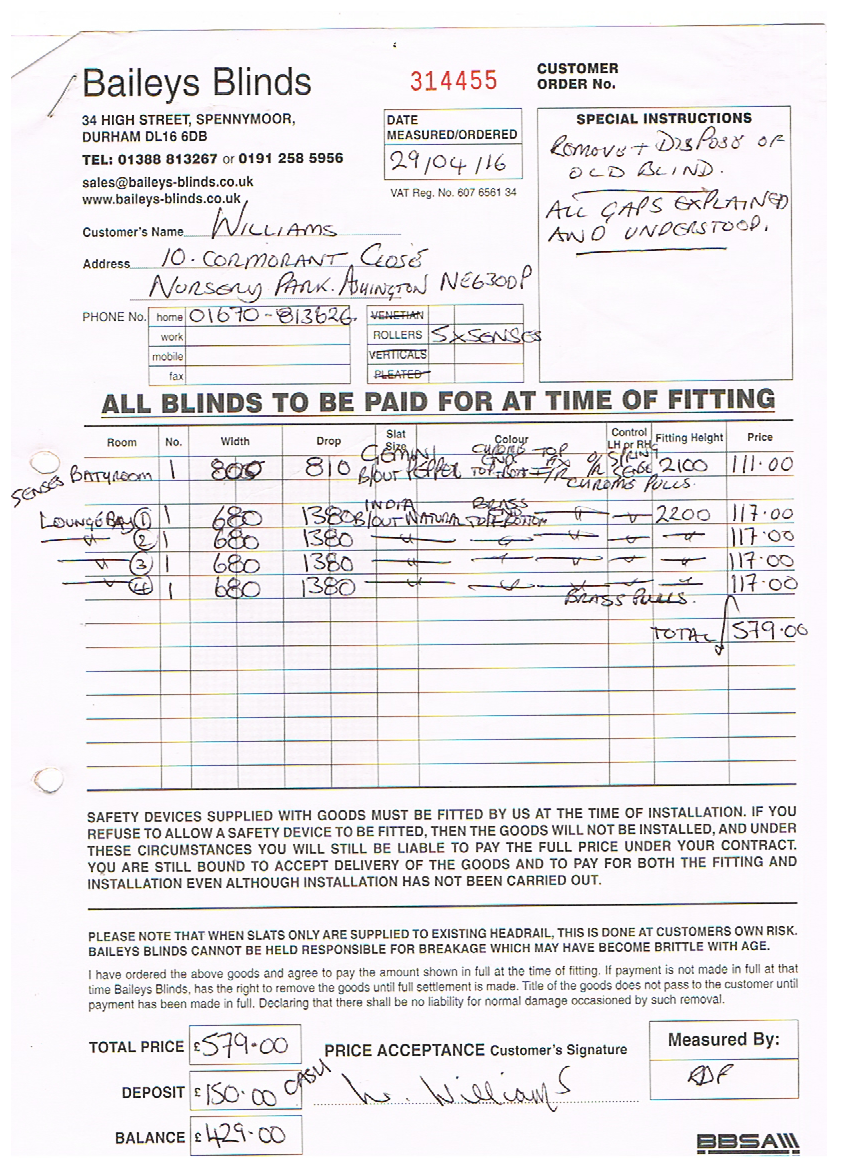 Baileys Blinds
314455
CUSTOMER
ORDER No.
34 HIGH STREET, SPENNYMOOR,
DURHAM DL16 6DB
TEL: 01388 813267 or 0191 258 5956
sales@baileys-blinds.co.uk
www.baileys-blinds.co.uk
DATE
MEASURED/ORDERED
29/04/16
VAT Reg. No. 607 6561 34
SPECIAL INSTRUCTIONS
REMOVE + DISPOSE OF
OLD BLIND.
ALL GAPS EXPLAINED
AND UNDERSTOOD.
Customer's Name WILLIAMS
Address 10. CORMORANT CLOSE
NURSERY PARK. ASHINGTON NE63 0DP
PHONE No. home 01670-813626.
work
mobile
fax
VENETIAN
ROLLERS 5 x SENSES
VERTICALS
PLEATED
ALL BLINDS TO BE PAID FOR AT TIME OF FITTING
Room No. Width Drop Slat Size Colour Control LH or RH Fitting Height Price
SENSES BATHROOM 1 800 810 GEMINI B/OUT PEPPER CHROME TOP CHROME PULLS. 2100 111.00
LOUNGE BAY 1 1 680 1380 INDIA B/OUT NATURAL BRASS 2200 117.00
2 1 680 1380 117.00
3 1 680 1380 117.00
4 1 680 1380 117.00
BRASS PULLS.
TOTAL 579.00
SAFETY DEVICES SUPPLIED WITH GOODS MUST BE FITTED BY US AT THE TIME OF INSTALLATION. IF YOU
REFUSE TO ALLOW A SAFETY DEVICE TO BE FITTED, THEN THE GOODS WILL NOT BE INSTALLED, AND UNDER
THESE CIRCUMSTANCES YOU WILL STILL BE LIABLE TO PAY THE FULL PRICE UNDER YOUR CONTRACT.
YOU ARE STILL BOUND TO ACCEPT DELIVERY OF THE GOODS AND TO PAY FOR BOTH THE FITTING AND
INSTALLATION EVEN ALTHOUGH INSTALLATION HAS NOT BEEN CARRIED OUT.
PLEASE NOTE THAT WHEN SLATS ONLY ARE SUPPLIED TO EXISTING HEADRAIL, THIS IS DONE AT CUSTOMERS OWN RISK.
BAILEYS BLINDS CANNOT BE HELD RESPONSIBLE FOR BREAKAGE WHICH MAY HAVE BECOME BRITTLE WITH AGE.
I have ordered the above goods and agree to pay the amount shown in full at the time of fitting. If payment is not made in full at that
time Baileys Blinds, has the right to remove the goods until full settlement is made. Title of the goods does not pass to the customer until
payment has been made in full. Declaring that there shall be no liability for normal damage occasioned by such removal.
TOTAL PRICE £579.00
PRICE ACCEPTANCE Customer's Signature
Measured By:
RDF
DEPOSIT £150.00 CASH
W. Williams
BALANCE £429.00
BBSA